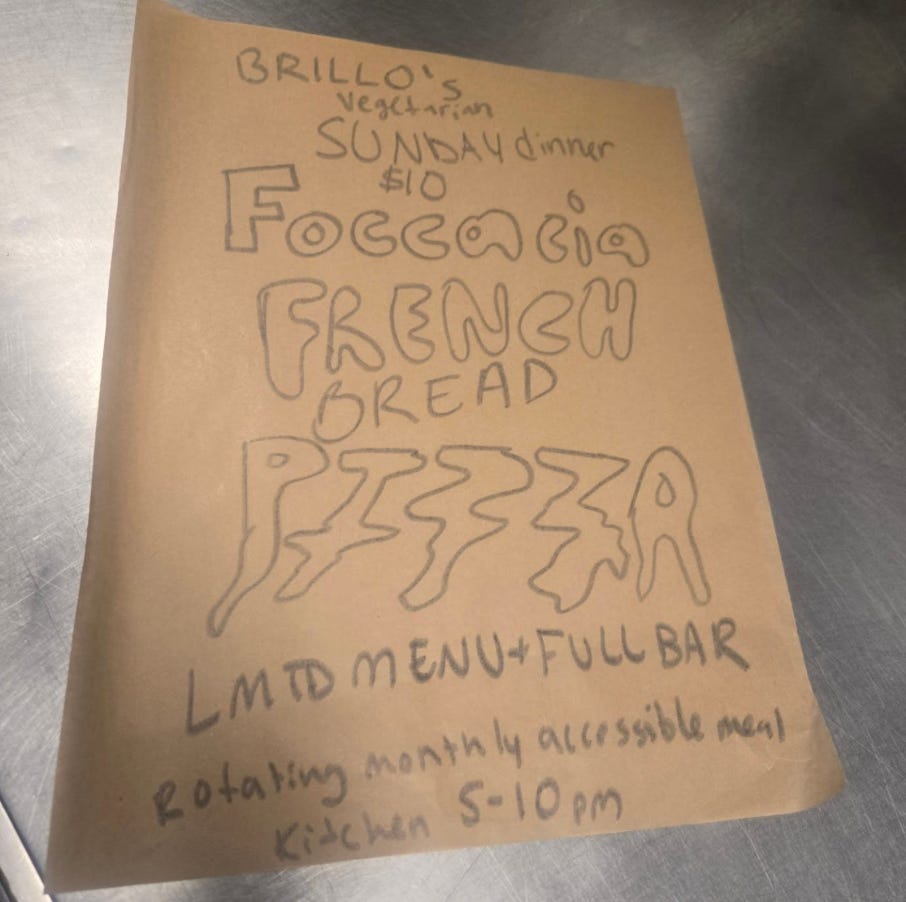 BRILLO's
vegetarian
SUNDAY dinner
$10
Foccacia
FRENCH
BREAD
PIZZA
LMTD MENU + FULL BAR
Rotating monthly accessible meal
Kitchen 5-10pm